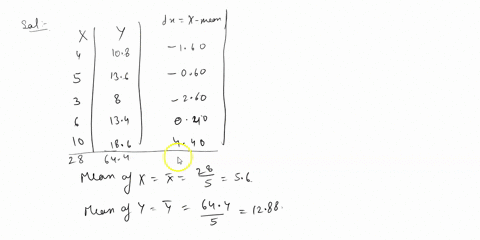 Sol:-
X Y dx = X-mean
4 10.8 -1.60
5 13.6 -0.60
3 8 -2.60
6 13.4 0.40
10 18.6 4.40
28 64.4
Mean of X = X̄ = 28/5 = 5.6
Mean of Y = Ȳ = 64.4/5 = 12.88.